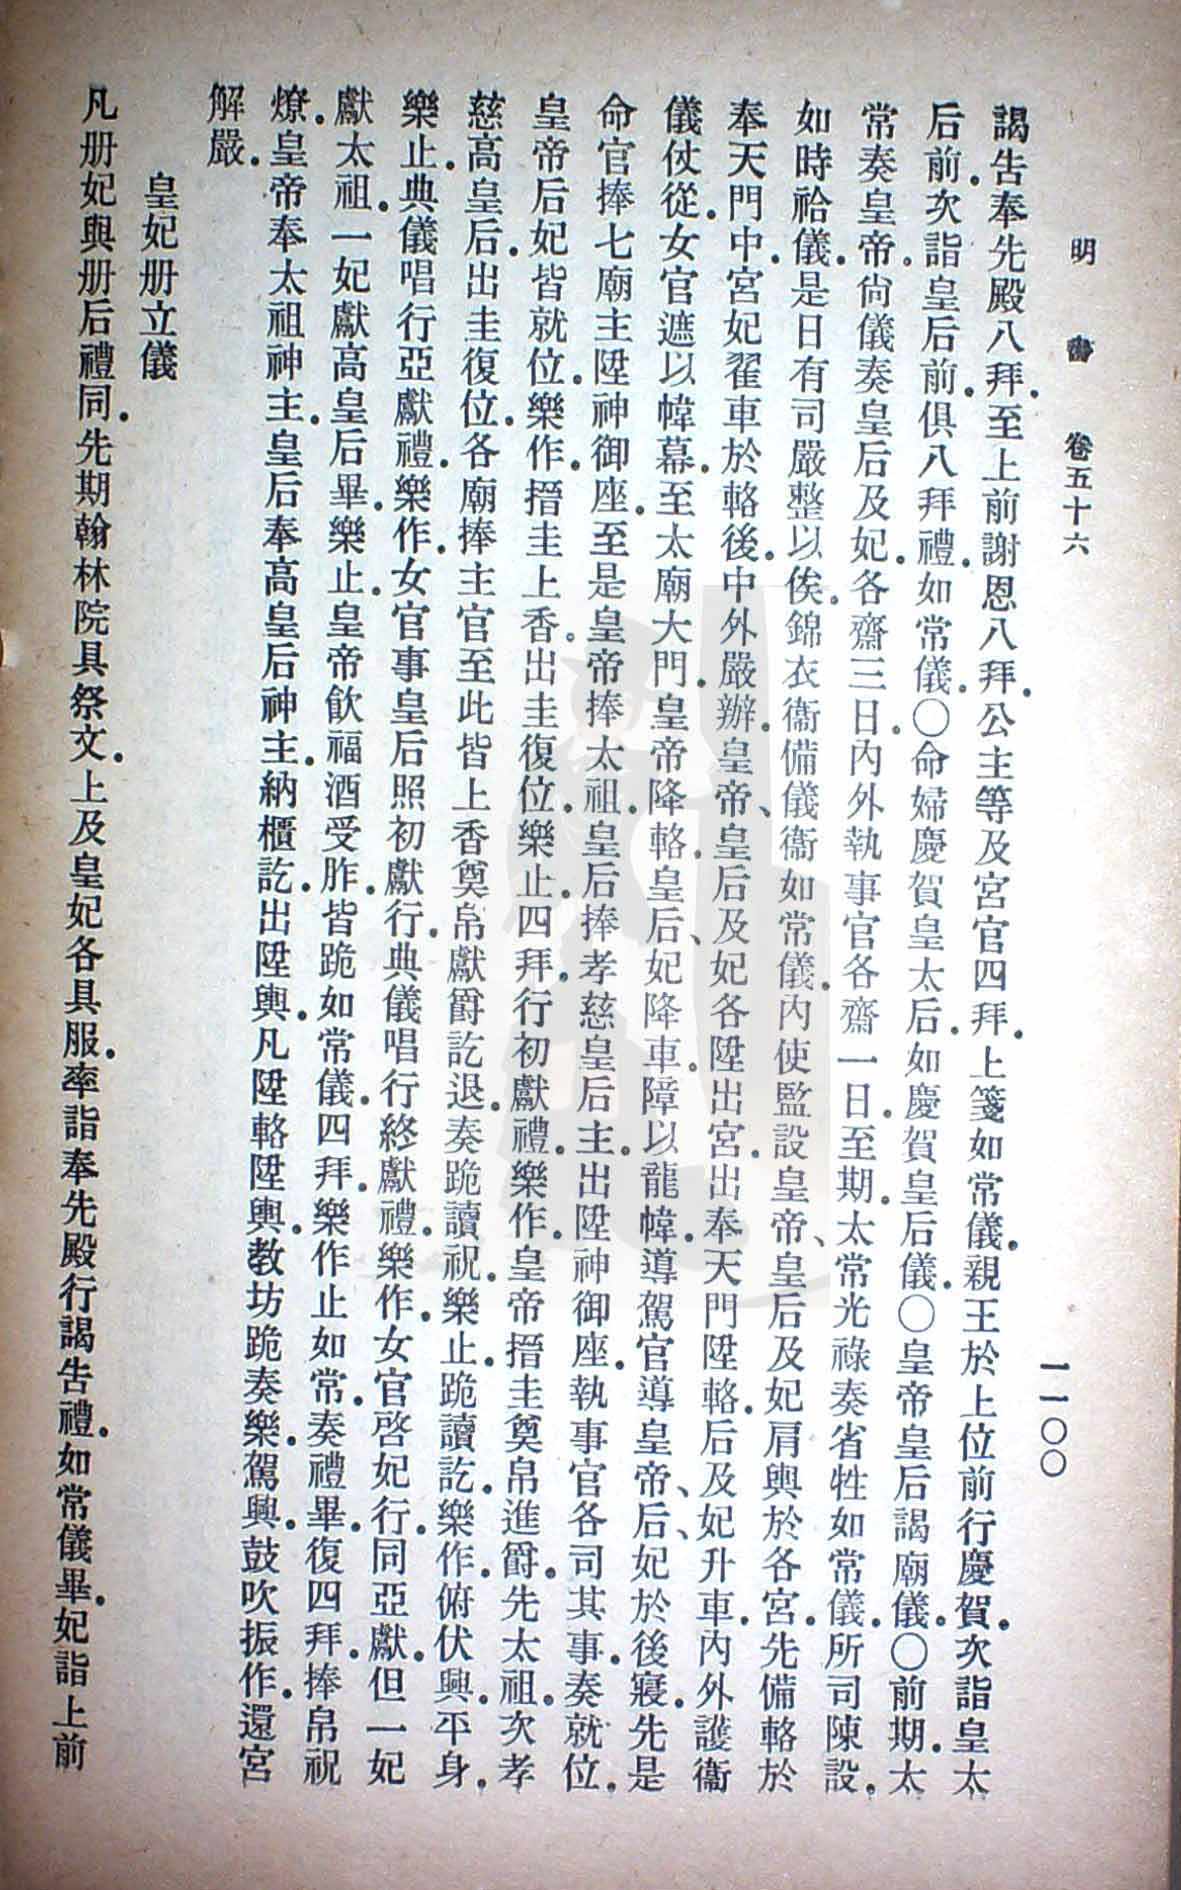 明書 卷五十六 一一〇〇
謁告奉先殿八拜.至上前謝恩八拜.公主等及宮官四拜.上箋如常儀.親王於上位前行慶賀.次詣皇太
后前.次詣皇后前.俱八拜禮.如常儀.〇命婦慶賀皇太后.如慶賀皇后儀.〇皇帝皇后謁廟儀.〇前期.太
常奏皇帝.尚儀奏皇后及妃.各齋三日.內外執事官各齋一日.至期.太常光祿奏省牲如常儀.所司陳設.
如時祫儀.是日有司嚴整以俟.錦衣衞備儀衞如常儀.內使監設皇帝、皇后及妃肩輿於各宮.先備輅於
奉天門中.宮妃翟車於輅後.中外嚴辦.皇帝、皇后及妃各陞出宮.出奉天門陞輅.后及妃升車.內外護衞
儀仗從.女官遮以幃幕.至太廟大門.皇帝降輅.皇后、妃降車.障以龍幃.導駕官導皇帝、后、妃於後寢.先是
命官捧七廟主陞神御座.至是皇帝捧太祖.皇后捧孝慈皇后主.出陞神御座.執事官各司其事.奏就位.
皇帝后妃皆就位.樂作.搢圭上香.出圭復位.樂止.四拜.行初獻禮.樂作.皇帝搢圭奠帛進爵.先太祖.次孝
慈高皇后.出圭復位.各廟捧主官至此皆上香奠帛獻爵訖退.奏跪讀祝.樂止.跪讀訖.樂作.俯伏興.平身.
樂止.典儀唱行亞獻禮.樂作.女官事皇后照初獻行.典儀唱行終獻禮.樂作.女官啓妃行.同亞獻.但一妃
獻太祖.一妃獻高皇后畢.樂止.皇帝飮福酒受胙.皆跪如常儀.四拜.樂作止如常.奏禮畢.復四拜.捧帛祝
燎.皇帝奉太祖神主.皇后奉高皇后神主.納櫃訖.出陞輿.凡陞輅陞輿.教坊跪奏樂.駕興.鼓吹振作.還宮
解嚴.
皇妃册立儀
凡册妃與册后禮同.先期翰林院具祭文.上及皇妃各具服.率詣奉先殿行謁告禮.如常儀畢.妃詣上前